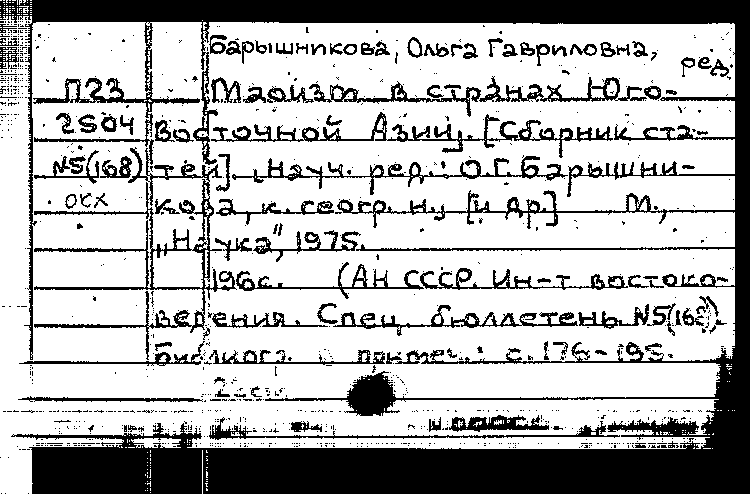 Барышникова, Ольга Гавриловна, ред.
П23 Маоизм в странах Юго-
2504 Восточной Азии. [Сборник ста-
№5(168) тей]. Науч. ред.: О.Г. Барышни-
окх кова, к. геогр. н., [и др.] М.,
„Наука", 1975.
196с. (АН СССР. Ин-т востоко-
ведения. Спец. бюллетень №5(168)).
Библиогр. в примеч.: с. 176-195.